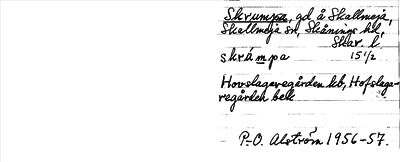 Skrumpa, gd å Skallmeja,
Skallmeja sn, Skånings hd,
Skar. l.
skråmpa 15 1/2
Hovslagaregården kb, Hofslaga-
regården bek
P.-O. Alström 1956-57.